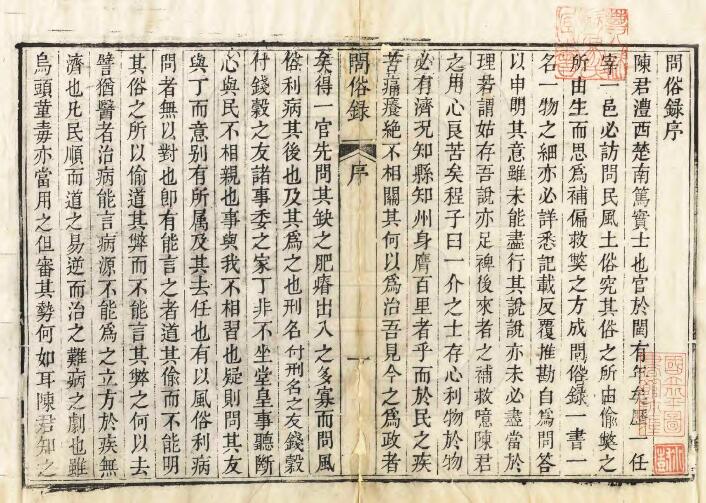 問俗録序
陳君澧西楚南篤實士也官於閩有年矣歷一任
宰一邑必訪問民風土俗究其俗之所由偷獘之
所由生而思爲補偏救獘之方成問俗録一書一
名一物之細亦必詳悉記載反覆推勘自爲問答
以申明其意雖未能盡行其說說亦未必盡當於
理若謂姑存吾說亦足裨後來者之補救噫陳君
之用心良苦矣程子曰一介之士存心利物於物
必有濟况知縣知州身膺百里者乎而於民之疾
苦痛癢絶不相關其何以爲治吾見今之爲政者
問俗録
序
一
矣得一官先問其缺之肥瘠出入之多寡而問風
俗利病其後也及其爲之也刑名付刑名之友錢穀
付錢穀之友諸事委之家丁非不坐堂皇事聽斷
心與民不相親也事與我不相習也疑則問其友
與丁而意别有所属及其去任也有以風俗利病
問者無以對也卽有能言之者道其偷而不能明
其俗之所以偷道其獘而不能言其獘之何以去
譬猶醫者治病能言病源不能爲之立方於疾無
濟也凡民順而道之易逆而治之難病之劇也雖
烏頭堇毒亦當用之但審其勢何如耳陳君知之